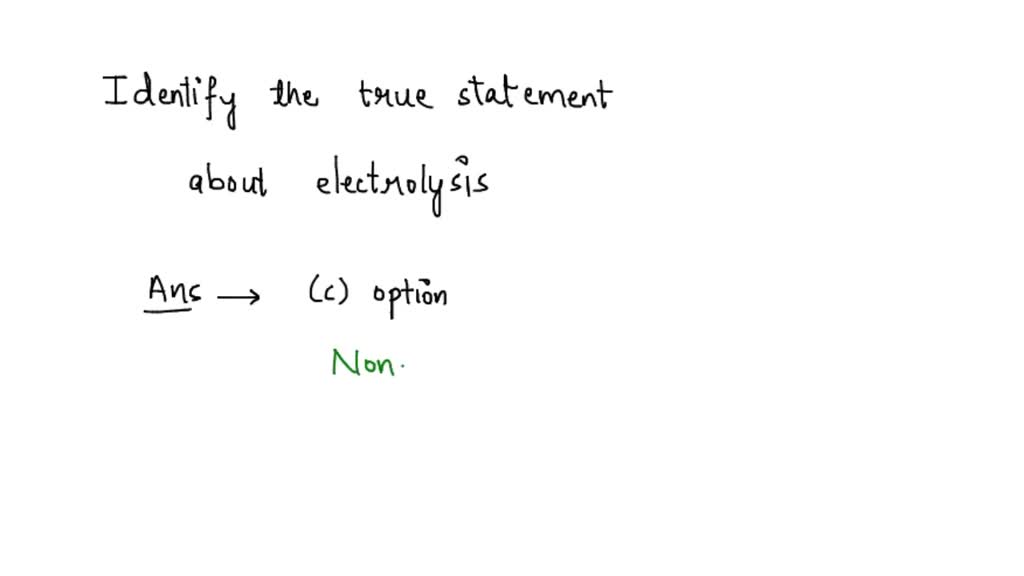 Identify the true statement
about electrolysis
Ans → (c) option
Non.